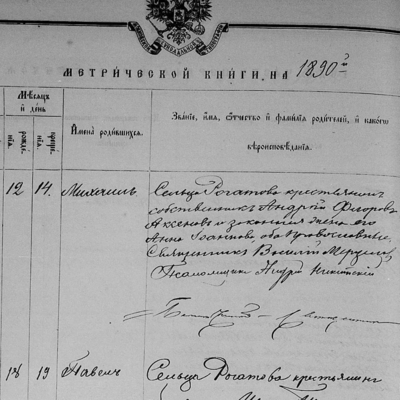 МЕТРИ́ЧЕСКОЙ КНИ́ГИ, НА 1890й
Мѣсяцъ и день
рожде- нія.
креще- нія.
Имена родившихся.
Званіе, имя, отчество и фамилія родителей, и какого вѣроисповѣданія.
12 14. Михаилъ. Сельца Рогатова крестьянинъ
собственникъ Андрей Флоровъ
Аксеновъ и законная жена его
Анна Іоаннова оба православные.
Священникъ Василій
Псаломщикъ Андрей Никитскій
18 19 Павелъ Сельца Рогатова крестьянинъ